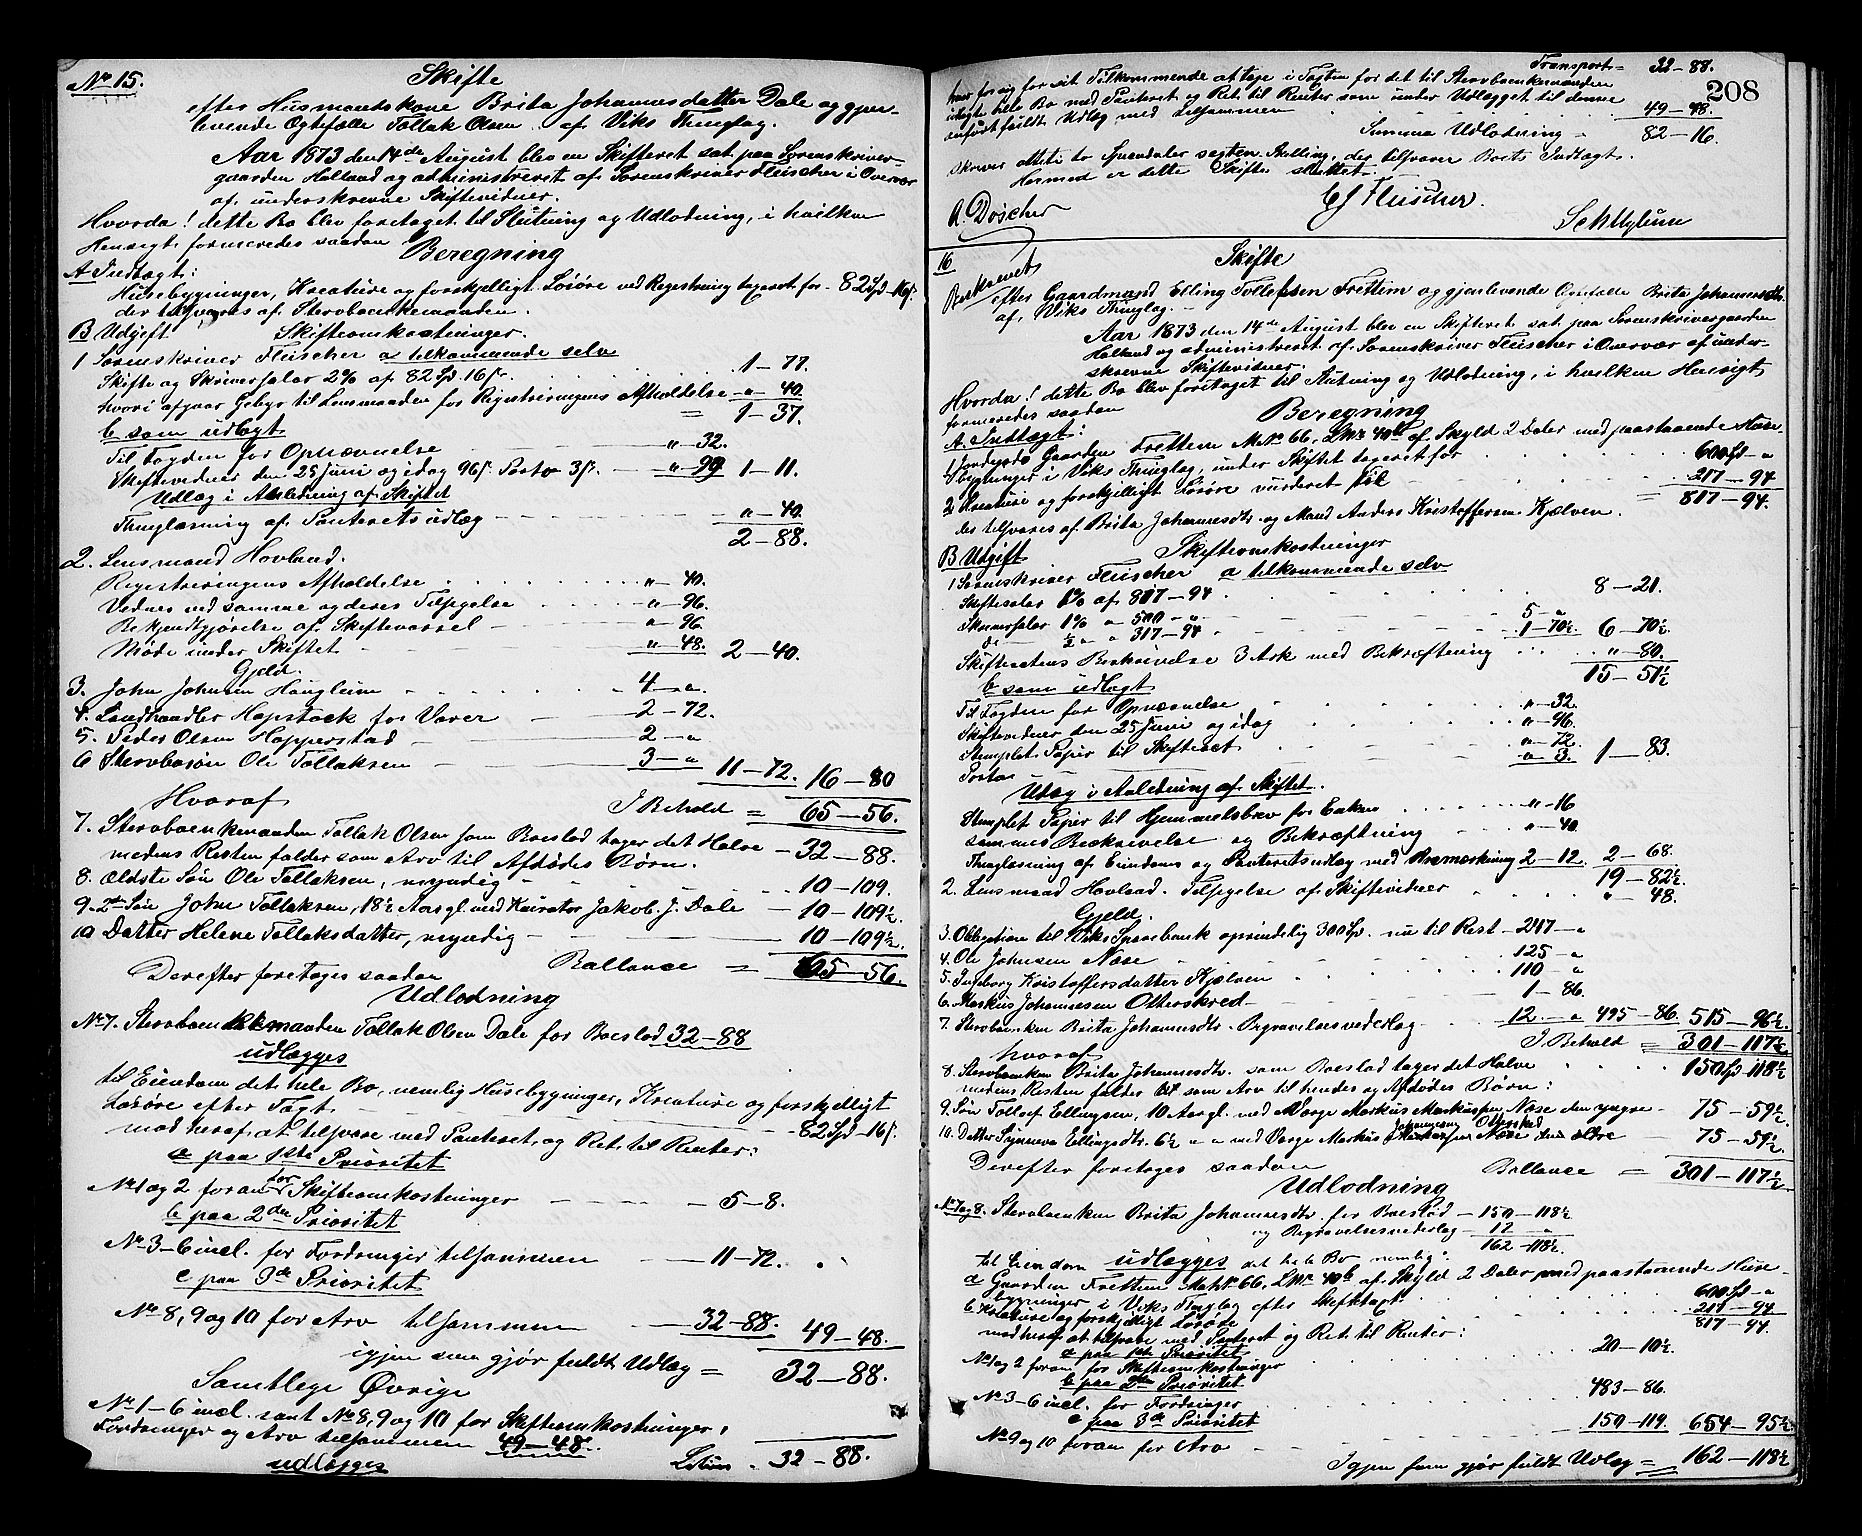 No 15.
Skifte
efter Husmandskone Brita Johannesdatter Dale og gjen-
levende Ægtefælle Tollak Olsen af Viks Thinglag.
Aar 1873 den 14de August blev en Skifteret sat paa Sorenskriver-
gaarden Holland og administreret af Sorenskriver Fleischer i Overvær
af underskrevne Skiftevidner.
Hvorda! dette Bo blev foretaget til Slutning og Udlodning, i hvilken
Henseigt formeredes saadan
Beregning
A Indtægt:
Husebygninger, Kreature og forskjelligt Løsøre ved Registrering tageret for - 82 Spd - 16 s.
der tilsvares af Stervboenkemanden.
B Udgift
Skifteomkostninger.
1 Sorenskriver Fleischer a tilkommende selv
Skifte og Skriversalær 2% af 82 Spd. 16 s. 1-77.
hvori afgaar Gebyr til Lensmanden for Registreringens Afholdelse " - 40.
= 1-37.
b som udlagt
Til Fogden for Opnævnelse " - 32.
Skiftevidner den 25 Juni og idag 96 s. Porto 3 s. " - 99 1-11.
Udlæg i Anledning af Skiftet
Thinglæsning af Panteretsudlæg " - 40.
2-88.
2. Lensmand Hovland.
Registreringens Afholdelse " - 40.
Vidner ved samme og deres Tilsigelse " - 96.
Bekjendtgjørelse af Skiftevarsel " - 96
Møde under Skiftet " - 48. 2-40.
Gjeld.
3. John Johnsen Haugleim 4 - ".
4. Landhandler Hopstock for Varer 2-72.
5. Peder Olsen Hopperstad 2 - "
6 Stervbosøn Ole Tollaksen 3 - " 11-72. 16-80
Hvoraf I Behold = 65-56.
7. Stervboenkemanden Tollak Olsen som Boeslod tager det Halve - 32-88.
medens Resten falder som Arv til Afdødes Børn.
8. Ældste Søn Ole Tollaksen, myndig 10-109.
9. 2den Søn John Tollaksen, 18½ Aar gl. med Kurator Jakob J. Dale 10-109½.
10 Datter Helene Tollaksdatter, myndig 10-109½.
Ballance = 65-56.
Derefter foretoges saadan
Udlodning
No 7. Stervboenkemanden Tollak Olsen Dale for Boeslod 32-88
udlægges
til Eiendom det hele Bo, nemlig Husebygninger, Kreature og forskjelligt
Løsøre efter Taxt 82 Spd - 16 s.
mod heraf at tilsvare med Panteret og Ret til Renter:
a paa 1ste Prioritet
No 1 og 2 foran for Skifteomkostninger 5-8.
b paa 2den Prioritet
No 3-6 incl. for Fordringer tilsammen 11-72.
c paa 3die Prioritet
No 8, 9 og 10 for Arv tilsammen 32-88. 49-48.
igjen som gjør fuldt Udlæg = 32-88.
Samtlege Øvrige
No 1-6 incl. samt No 8, 9 og 10 for Skifteomkostninger,
Fordringer og Arv tilsammen 49-48.
udlægges Latus 32-88.
Transport = 32-88.
208
hver for sig for sit Tilkommende at tage i Taxten for det til Stervboenkemanden
udlagte hele Bo med Panteret og Ret til Renter som under Udlægget til denne
anført fuldt Udlæg med tilsammen 49-48.
Summa Udlodning 82-16.
skriver otteti to Speciedaler sexten Skilling, der tilsvarer Boets Indtægt.
Hermed er dette Skifte sluttet.
A. Döscher
Fleischer.
16
Beskrevet
Skifte
efter Gaardmand Elling Tollefsen Frettem og gjenlevende Ægtefælle Brita Johannesdtr.
af Viks Thinglag.
Aar 1873 den 14de August blev en Skifteret sat paa Sorenskrivergaarden
Holland og administreret af Sorenskriver Fleischer i Overvær af under-
skrevne Skiftevidner.
Hvorda! dette Bo blev foretaget til Slutning og Udlodning, i hvilken Henseigt
formeredes saadan
Beregning
A. Indtægt:
1 Jordegods Gaarden Frettem Mat No 66, L No 40b af Skyld 2 Daler med paastaaende Huse-
bygninger i Viks Thinglag, under Skiftet tageret for 600 Spd - "
2 Kreature og forskjelligt Løsøre vurderet til 217-94
= 817-94.
der tilsvares af Brita Johannesdtr. og Mand Anders Kristoffersen Kjølven.
B Udgift
Skifteomkostninger
1 Sorenskriver Fleischer a tilkommende selv
Skiftesalær 1% af 817-94 8-21.
Skriversalær 1% " 500 - " 5 - "
do ½ " " 317-94 1-70½. 6-70½.
Skifterettens Beskrivelse 3 Ark med Bekræftning " - 80.
15-51½
b som udlagt
Til Fogden for Opnævnelse " - 32.
Skiftevidner den 25 Juni og idag " - 96.
Stemplet Papir til Skifteret " - 72.
Porto " 3. 1-83.
Udlæg i Anledning af Skiftet.
Stemplet Papir til Hjemmelsbrev for Enken " - 16
sammes Beskrivelse og Bekræftning " - 40.
Thinglæsning af Eiendoms og Panteretsudlæg med Anmærkning 2-12. 2-68.
19-82½
2. Lensmand Hovland. Tilsigelse af Skiftevidner " - 48.
Gjeld.
3. Obligation til Viks Sparebank oprindelig 300 Spd. nu til Rest - 247 - "
4. Ole Johnsen Næse 125 - "
5. Ingeborg Kristoffersdatter Kjølven 110 - "
6. Markus Johannesen Otterskred 1-86.
7. Stervboenken Brita Johannesdtr. Begravelsesvederlag 12. - " 495-86. 515-96½.
I Behold = 301-117½
hvoraf
8. Stervboenken Brita Johannesdtr. som Boeslod tager det Halve 150 Spd - 118½
medens Resten falder som Arv til hendes og Afdødes Børn:
9. Søn Tollef Ellingsen, 10 Aar gl. med Verge Markus Markussen Næse den yngre 75-59½.
10. Datter Synneva Ellingsdtr. 6½ " " med Verge Markus Johannesen Otterskred 75-59½.
Ballance = 301-117½
Derefter foretoges saadan
Udlodning
No 7 og 8. Stervboenken Brita Johannesdtr. for Boeslod 150-118½
og Begravelsesvederlag 12 - "
162-118½.
til Eiendom udlægges det hele Bo nemlig:
a Gaarden Frettem Mat No 66, L No 40b af Skyld 2 Daler med paastaaende Huse-
bygninger i Viks Thinglag efter Skiftetaxt 600 Spd - "
b Kreature og forskjelligt Løsøre 217-94
817-94.
mod heraf at tilsvare med Panteret og Ret til Renter:
a paa 1ste Prioritet
No 1 og 2 foran for Skifteomkostninger 20-10½.
b paa 2den Prioritet
No 3-6 incl. for Fordringer 483-86.
c paa 3die Prioritet
No 9 og 10 foran for Arv 150-119. 654-95½
Igjen som gjør fuldt Udlæg = 162-118½